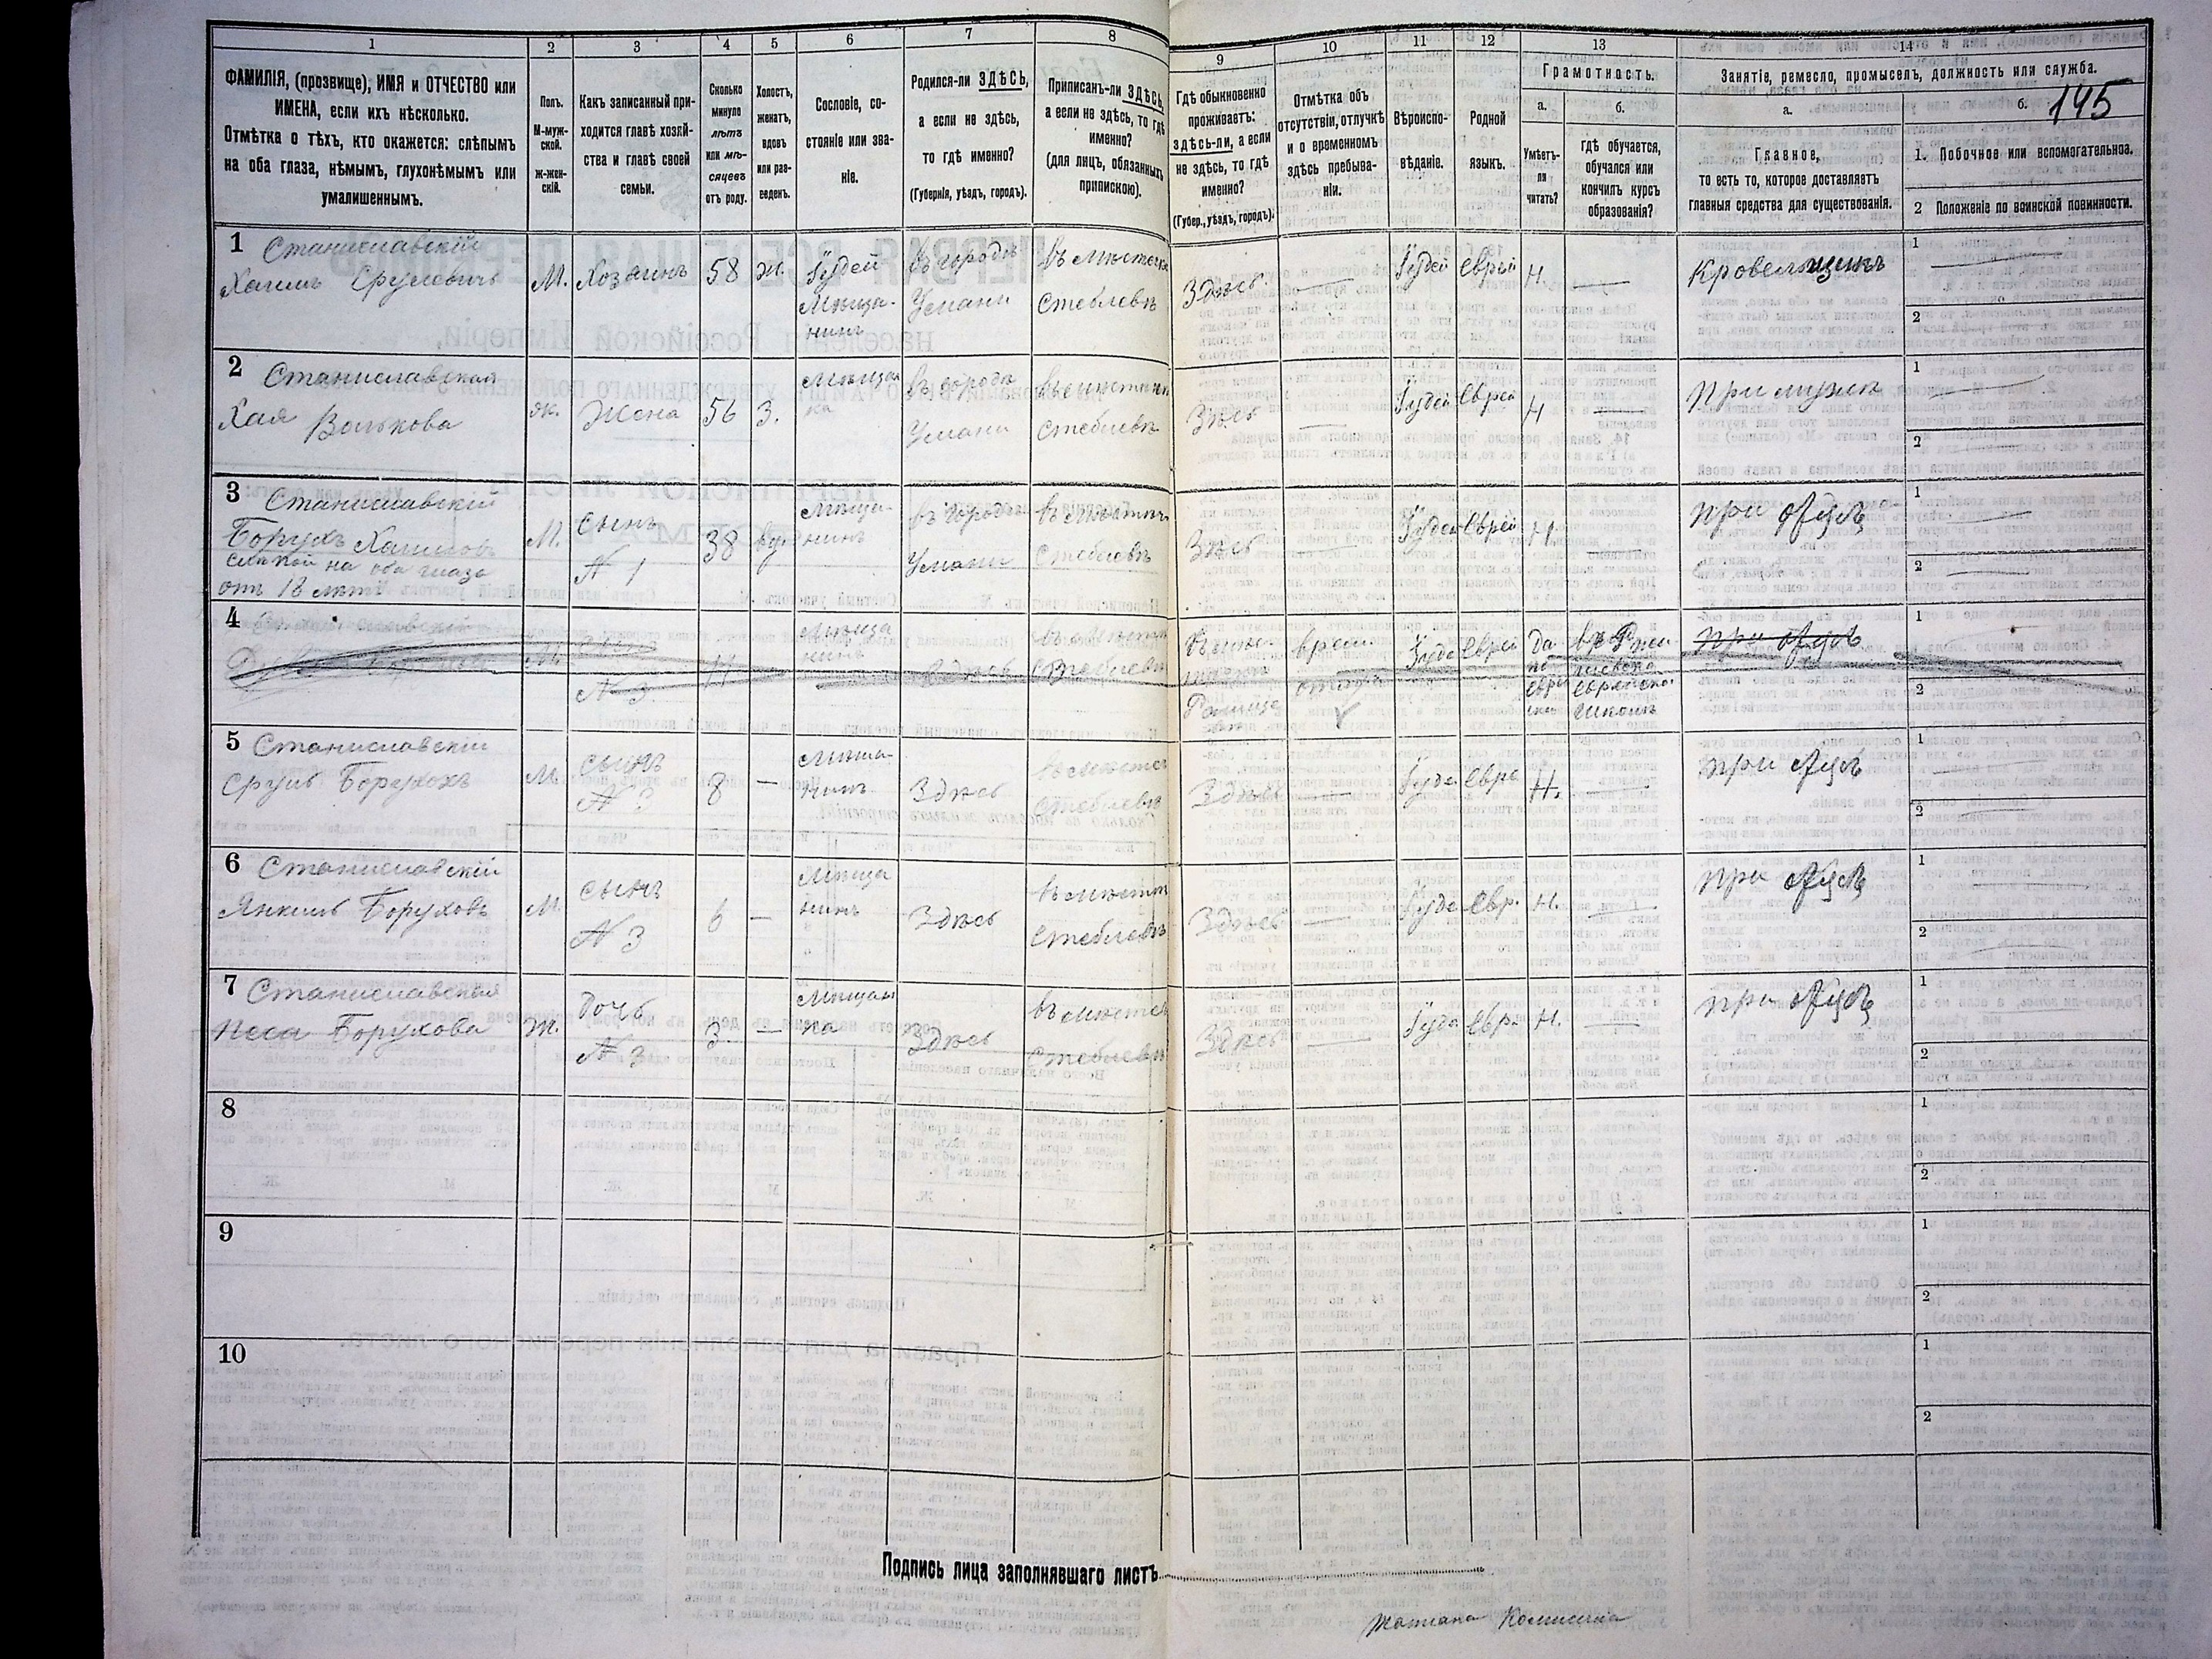 1
2
3
4
5
6
7
8
9
10
11
12
13
14
145
ФАМИЛІЯ, (прозвище), ИМЯ и ОТЧЕСТВО или
ИМЕНА, если ихъ нѣсколько.
Отмѣтка о тѣхъ, кто окажется: слѣпымъ
на оба глаза, нѣмымъ, глухонѣмымъ или
умалишеннымъ.
Полъ.
М-муж-
ской.
ж-жен-
скій.
Какъ записанный при-
ходится главѣ хозяй-
ства и главѣ своей
семьи.
Сколько
минуло
лѣтъ
или мѣ-
сяцевъ
отъ роду.
Холостъ,
женатъ,
вдовъ
или раз-
веденъ.
Сословіе, со-
стояніе или зва-
ніе.
Родился-ли ЗДѢСЬ,
а если не здѣсь,
то гдѣ именно?
(Губернія, уѣздъ, городъ).
Приписанъ-ли ЗДѢСЬ,
а если не здѣсь, то гдѣ
именно?
(для лицъ, обязанныхъ
припискою).
Гдѣ обыкновенно
проживаетъ:
здѣсь-ли, а если
не здѣсь, то гдѣ
именно?
(Губер., уѣздъ, городъ).
Отмѣтка объ
отсутствіи, отлучкѣ
и о временномъ
здѣсь пребыва-
ніи.
Вѣроиспо-
вѣданіе.
Родной
языкъ.
Грамотность.
а.
Умѣетъ-
ли
читать?
б.
гдѣ обучается,
обучался или
кончилъ курсъ
образованія?
Занятіе, ремесло, промыселъ, должность или служба.
а.
Главное,
то есть то, которое доставляетъ
главныя средства для существованія.
б.
1. Побочное или вспомогательное.
2 Положеніе по воинской повинности.
1 Станиславскій
Хаимъ Сруловичъ
М.
Хозяинъ
58
ж.
Іудей
Мѣща-
нинъ
въ городѣ
Умани
въ мѣстечкѣ
Стеблевѣ
Здѣсь.
Іудей
Еврей
Н.
Кровельщикъ
1
2
2 Станиславская
Хая Волькова
ж.
Жена
56
З.
Мѣщан
ка
въ городѣ
Умани
Стеблевѣ
Здѣсь
Іудей
Еврей
Н
При мужѣ
1
2
3 Станиславскій
Борухъ Хаимовъ
слѣпой на оба глаза
отъ 18 лѣтъ
М.
сынъ
№ 1
38
вд.
Мѣща-
нинъ
въ городѣ
Умани
Стеблевѣ
Здѣсь
Іудей
Еврей
Н.
при отцѣ
1
2
4
М
№ 3
Мѣща
нинъ
Здѣсь
Стеблевѣ
Іуде
Еврей
Да
при отцѣ
1
2
5 Станиславскій
Сруль Боруховъ
М.
сынъ
№ 3
8
Мѣща-
нинъ
Здѣсь
Стеблевѣ
Здѣсь
Іуде
Евре
Н.
при отцѣ
1
2
6 Станиславскій
Янкель Боруховъ
М.
сынъ
№ 3
6
Мѣща
нинъ
Здѣсь
Стеблевѣ
Здѣсь
Іуде
Евр.
Н.
при отцѣ
1
2
7 Станиславская
Песа Борухова
Ж.
дочь
№ 3
3.
Мѣщан
ка
Здѣсь
Стеблевѣ
Здѣсь
Іуде
Евр.
Н.
при отцѣ
1
2
8
1
2
9
1
2
10
1
2
Подпись лица заполнявшаго листъ